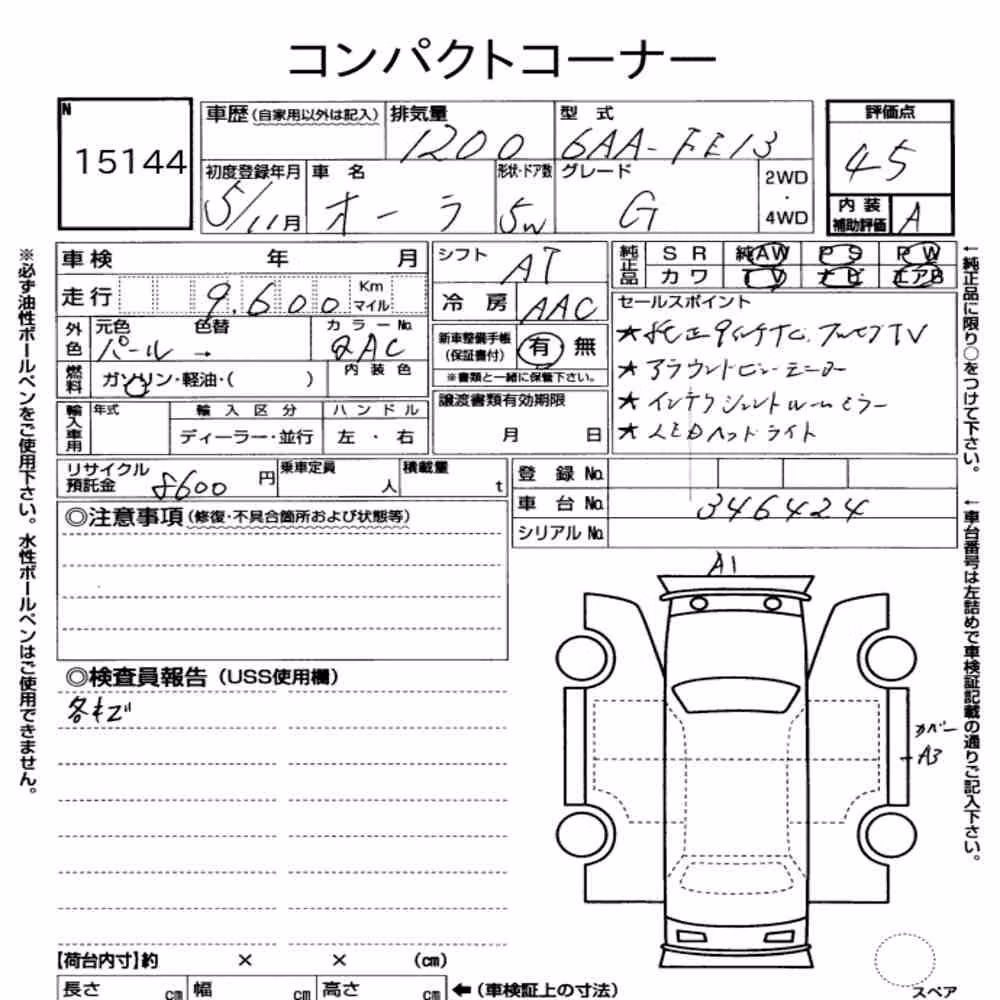 コンパクトコーナー
N
15144
車歴(自家用以外は記入)
排気量
1200
型 式
6AA-FE13
評価点
45
初度登録年月
5/11月
車 名
オーラ
形状・ドア数
5W
グレード
G
2WD
・
4WD
内 装
補助評価
A
車検 年 月
走行 9,600 Km マイル
外色
元色 パール
色替 →
カラーNo.
QAC
燃料
ガソリン・軽油・( )
内 装 色
輸入車用
年式
輸 入 区 分
ディーラー・並行
ハ ン ド ル
左 ・ 右
シフト
AT
冷 房
AAC
新車整備手帳
(保証書付)
有 無
※書類と一緒に保管下さい。
譲渡書類有効期限
月 日
純正品
S R 純AW P S P W
カ ワ T V ナ ビ エアB
セールスポイント
★純正9インチTC. フルセグTV
★アラウンドビューモニター
★インテリジェントルームミラー
★LEDヘッドライト
リサイクル
預託金
8600 円
乗車定員
人
積載量
t
登 録 No.
車 台 No. 346424
シリアル No.
◎注意事項(修復・不具合箇所および状態等)
◎検査員報告(USS使用欄)
各キズ
A1
カバー
A3
【荷台内寸】約 × × (cm)
長さ cm 幅 cm 高さ cm ←(車検証上の寸法)
スペア
※必ず油性ボールペンをご使用下さい。水性ボールペンはご使用できません。
←純正品に限り○をつけて下さい。
←車台番号は左詰めで車検証記載の通りご記入下さい。